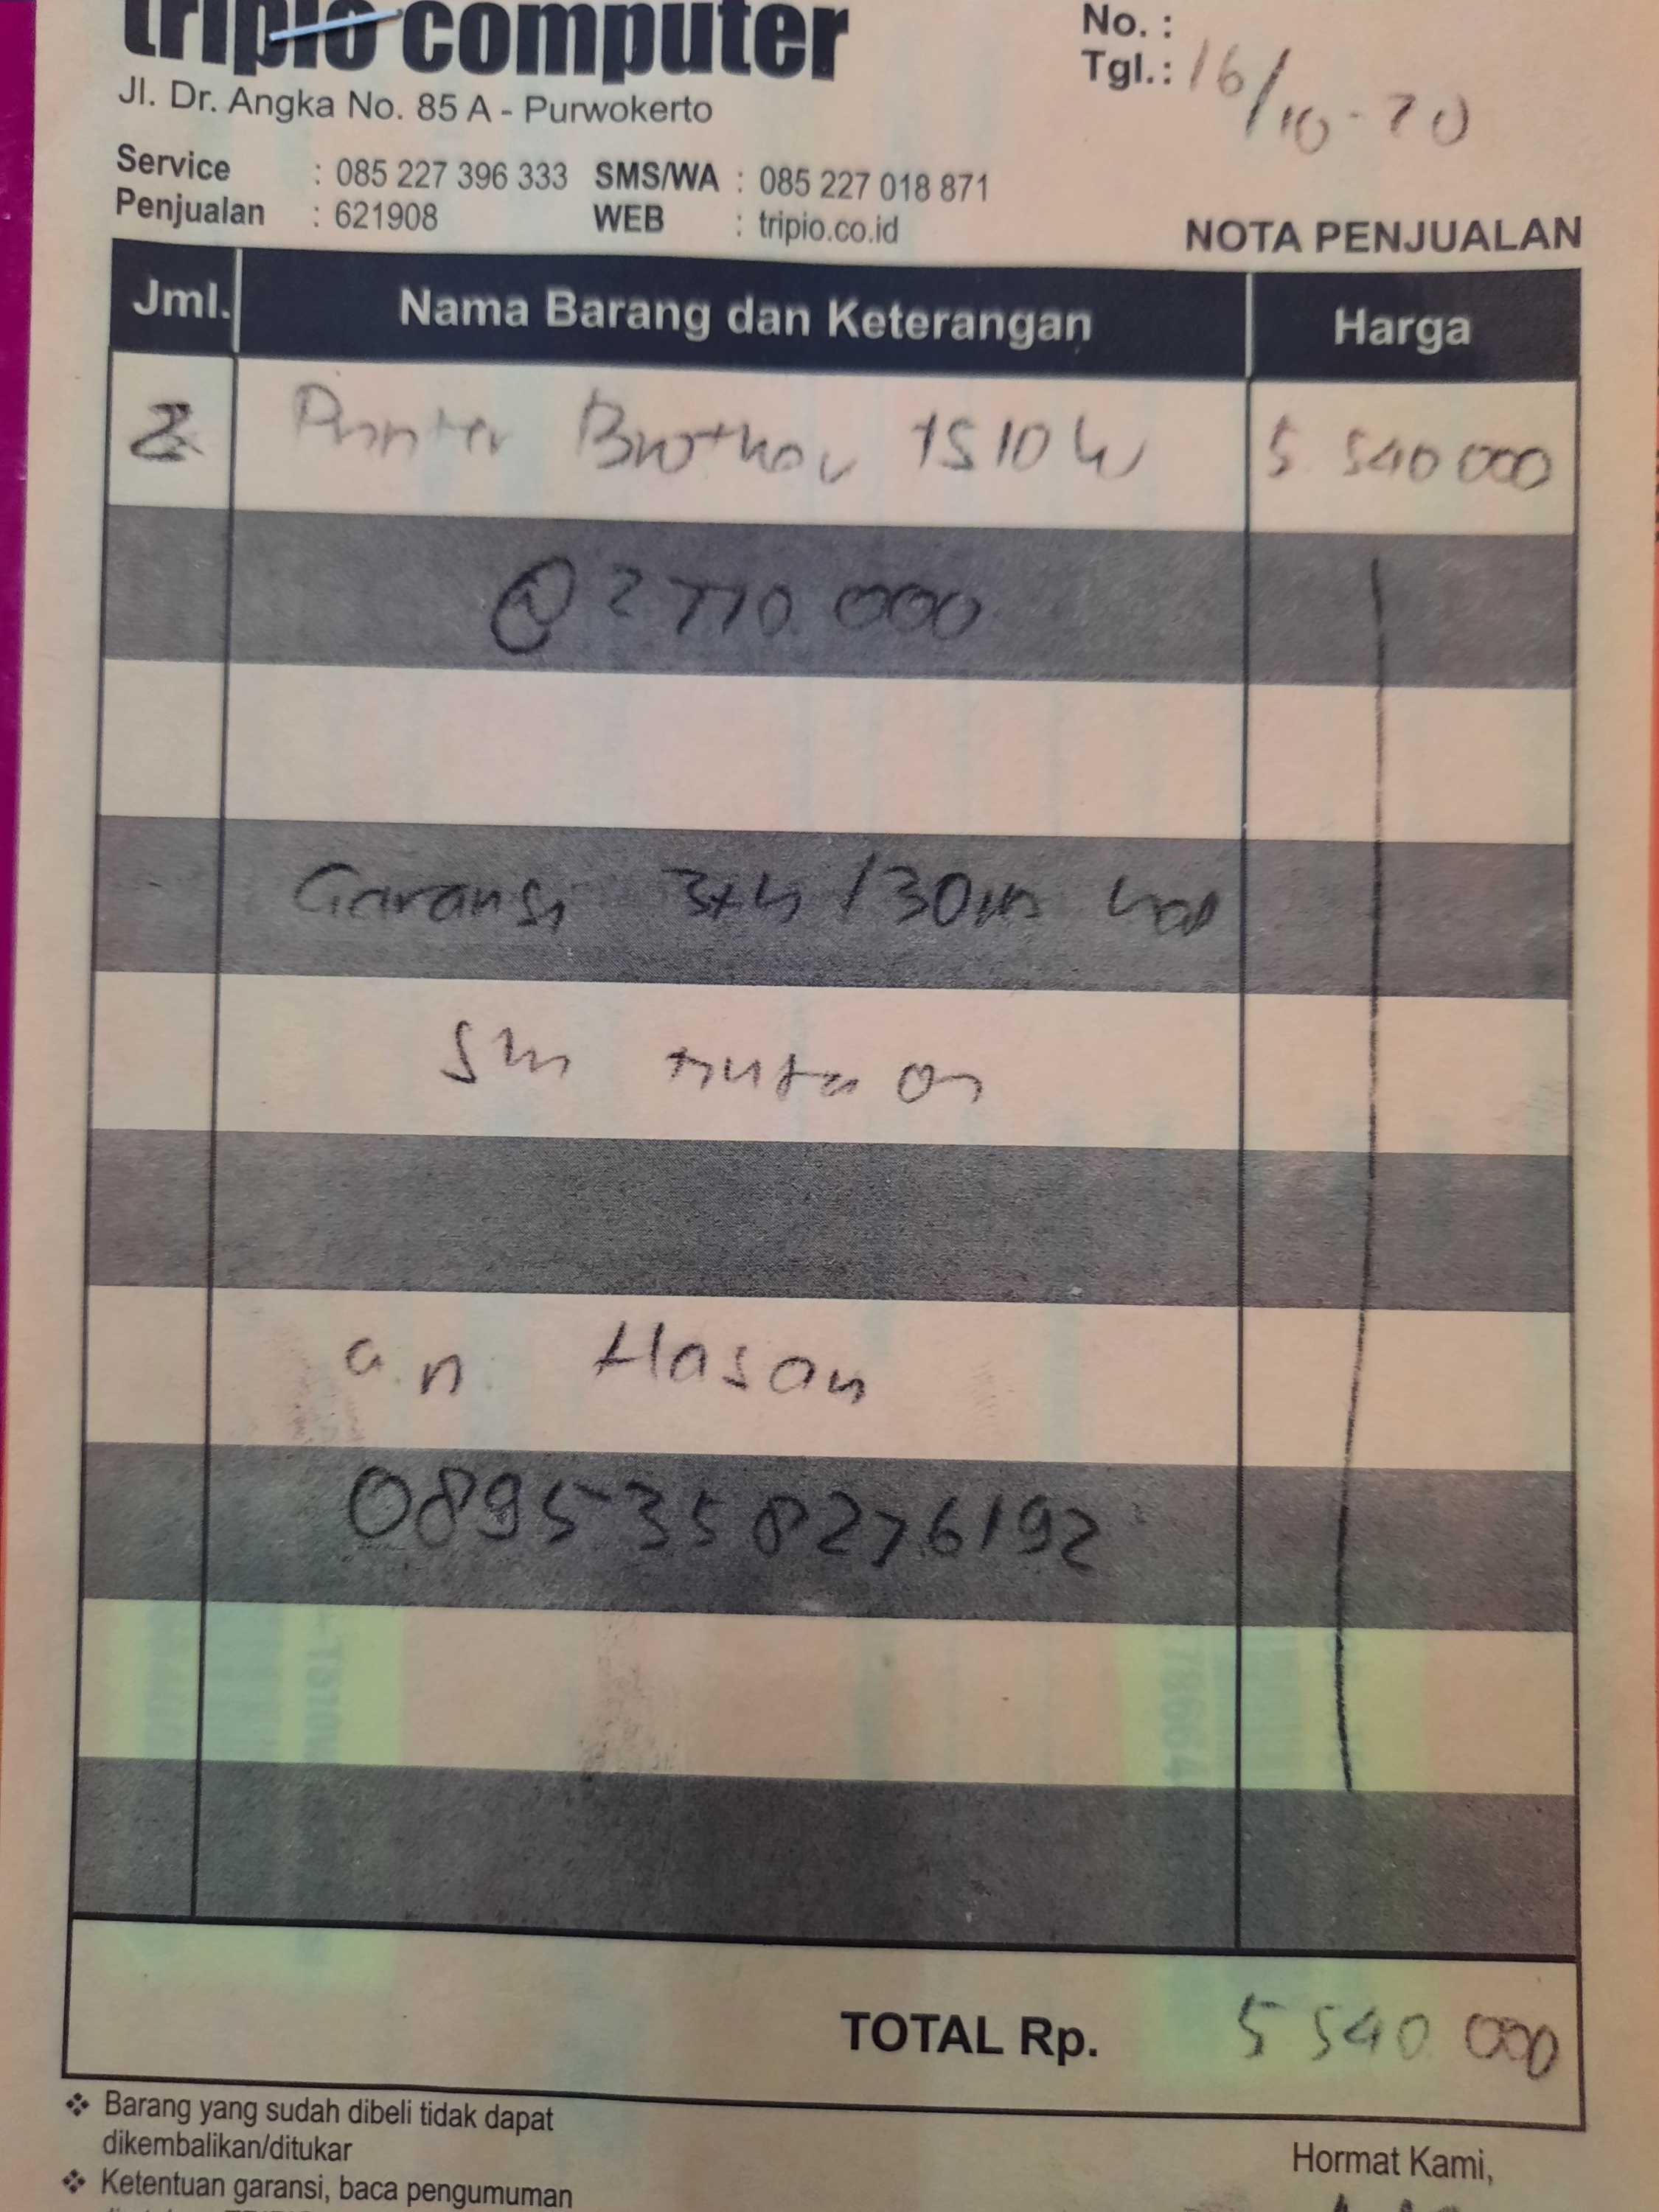 tripio computer
Jl. Dr. Angka No. 85 A - Purwokerto
No. :
Tgl.: 16/10-20
Service : 085 227 396 333 SMS/WA : 085 227 018 871
Penjualan : 621908 WEB : tripio.co.id
NOTA PENJUALAN
Jml. Nama Barang dan Keterangan Harga
2 Printer Brother T510W 5 540 000
@ 2 770.000
Garansi 3th /30
a.n. Hasan
0895358276192
TOTAL Rp. 5 540.000
Barang yang sudah dibeli tidak dapat
dikembalikan/ditukar
Ketentuan garansi, baca pengumuman
Hormat Kami,